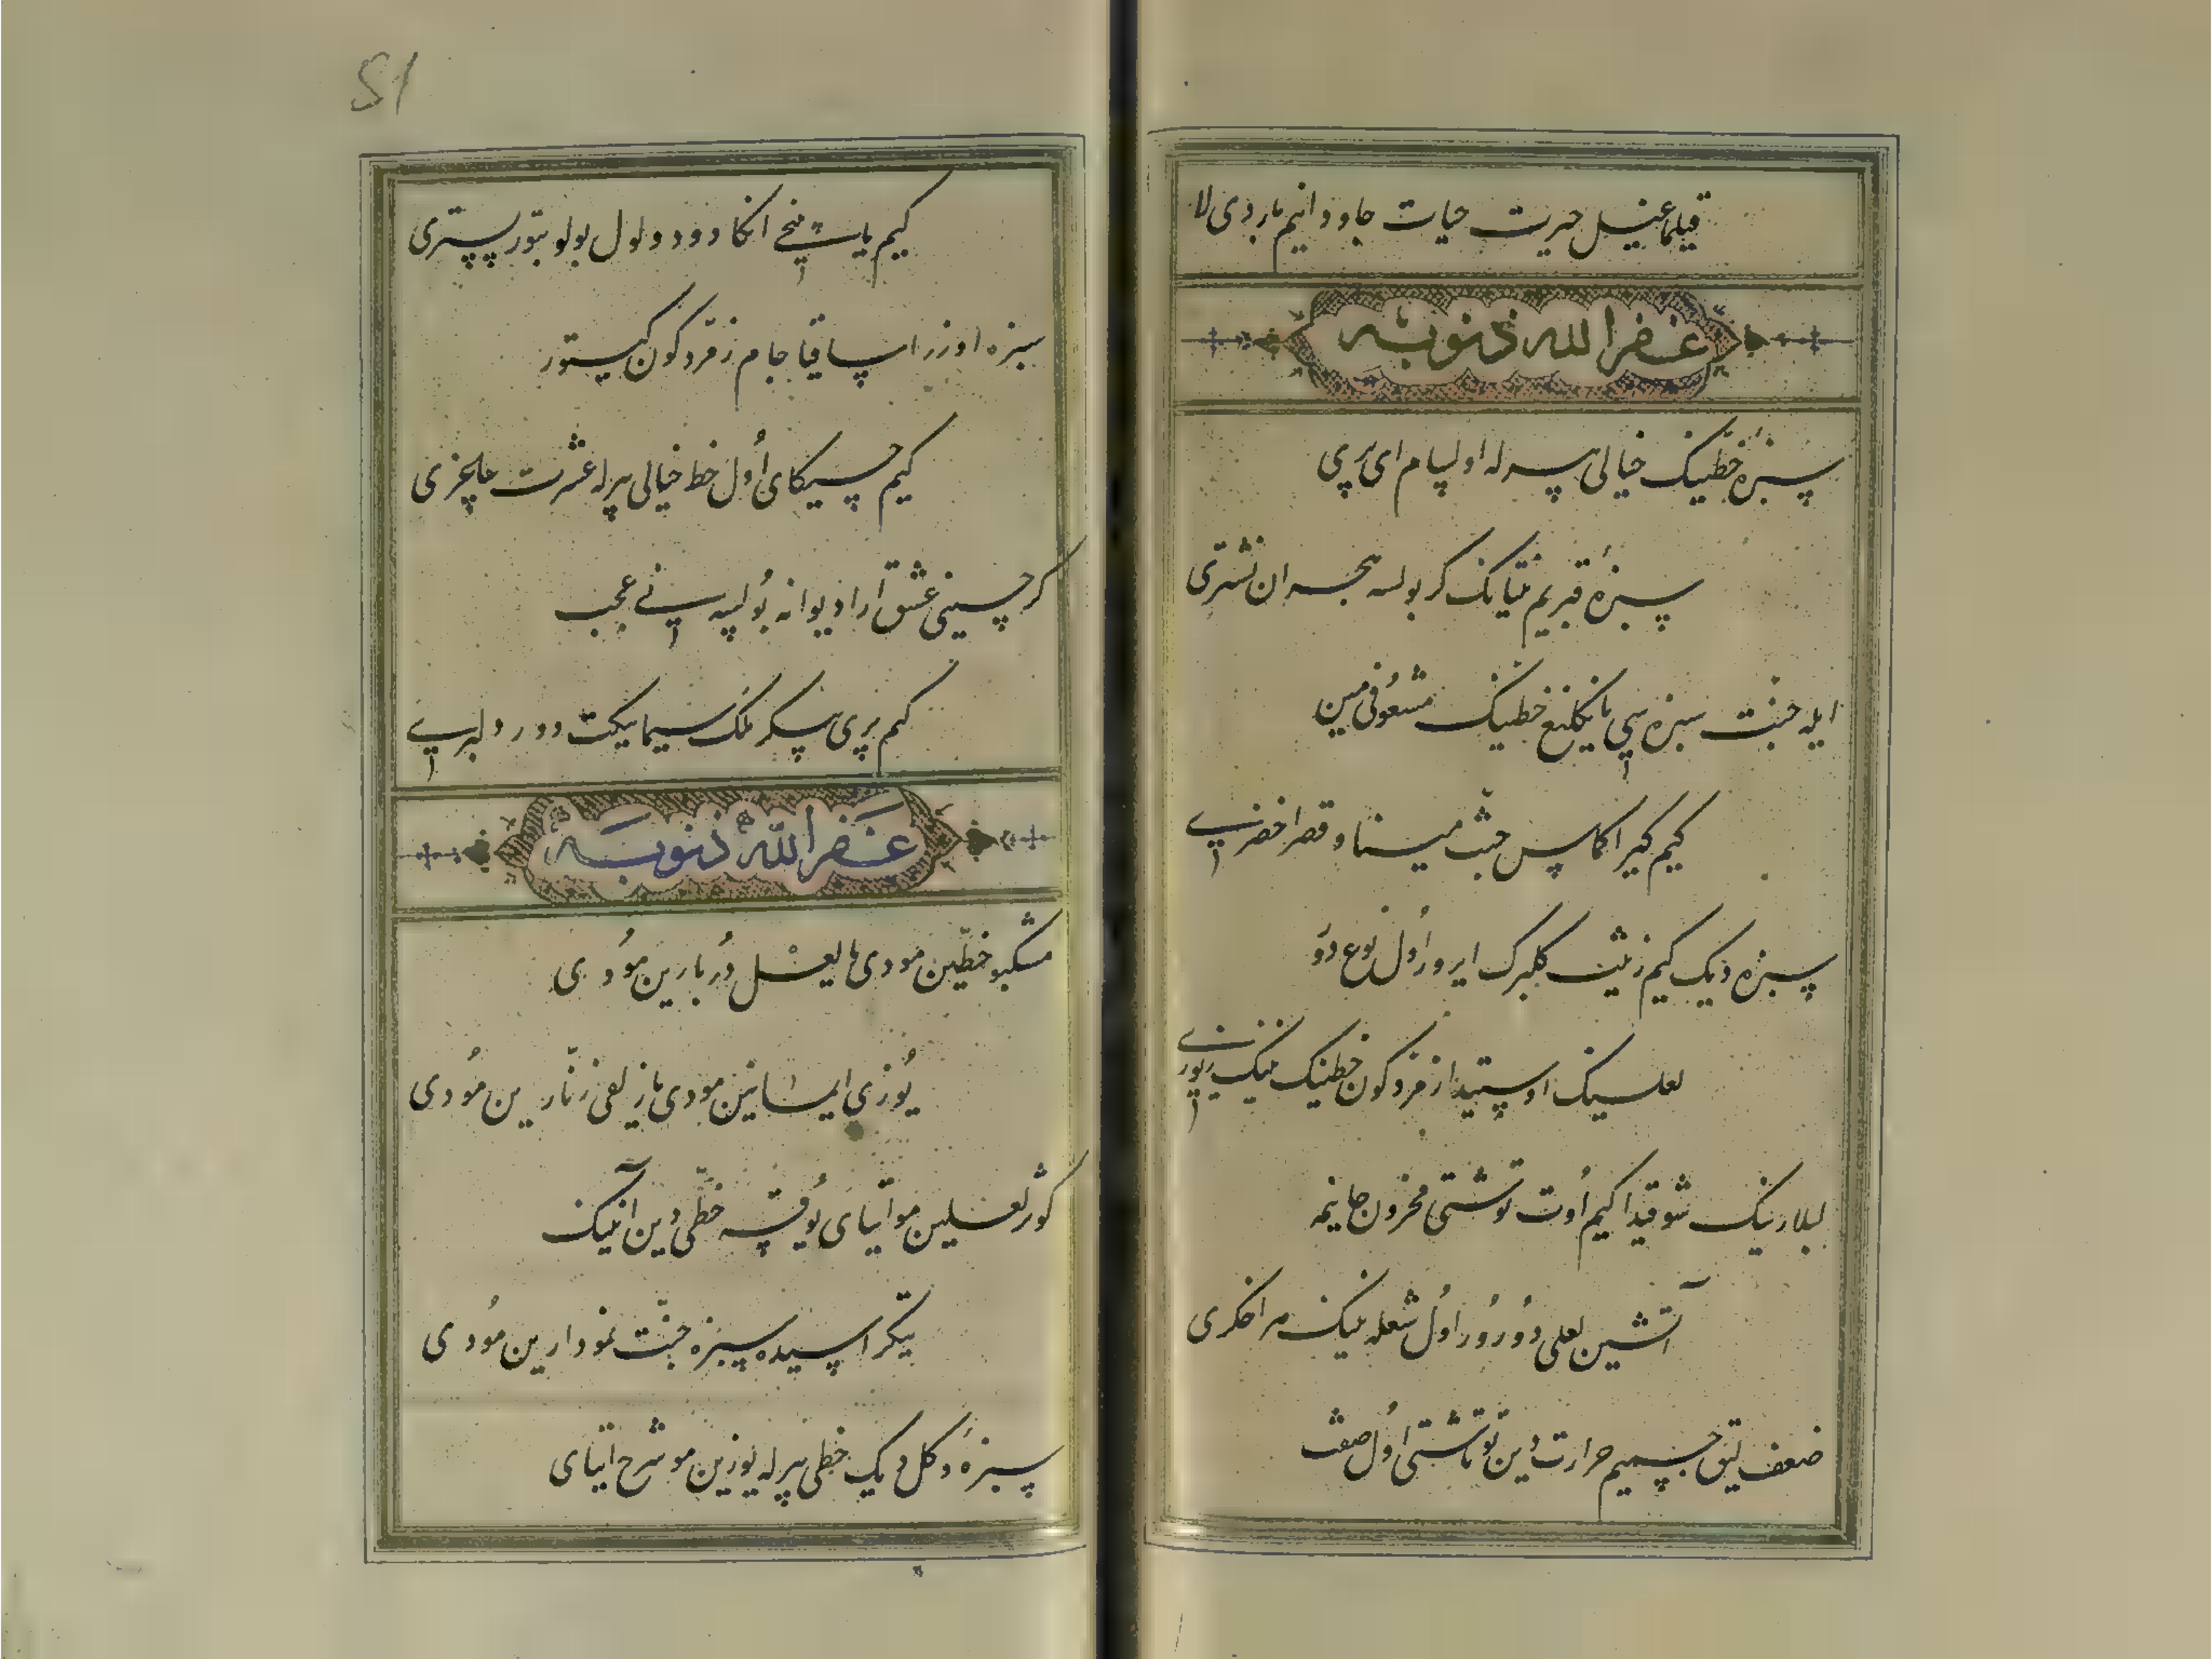 قیلماغیل حیرت حیات جاودانیم باردی لا
غفر الله ذنوبه
سبزهٔ خطینک خیالی بیرله اولسام ای پری
سبزهٔ قبریم تیانک کر بولسه هجران نشتری
ایله جنت سبزه سی یانکلیغ خطینک مشعوفی مین
کیم کیراکماس جنت مینا و قصر اخضری
سبزه دیک کیم زینت کلبرک ایرور اول نوع دور
لعلینک اوستیدا زمردکون خطینک نینک زیوری
لبلارینک شوقیدا کیم اوت توشتی محزون جانیمه
آتشین لعلی دورور اول شعله نینک هر اخکری
ضعفلیق جسمیم حرارت دین توتاشتی اول صفت
51
کیم یاشینی انکا دود اول بولوبتور بستری
سبزه اوزرا ساقیا جام زمردکون کیتور
کیم چیکای اول خط خیالی بیرله عشرت ساغری
کر حسینی عشق ارا دیوانه بولسه نی عجب
کیم پری پیکر ملک سیما بیکت دور دلبری
غفر الله ذنوبه
مشکبو خطین مو دی یا لعل دربارین مو دی
یوزی ایمانین مو دی یا زلفی زنارین مو دی
کوثر لعلین مو ایتای یوقسه خطی دین انینک
تیکراسیده سبزه جنت نمودارین مو دی
سبزه و کل دیک خطی بیرله یوزین مو شرح ایتای